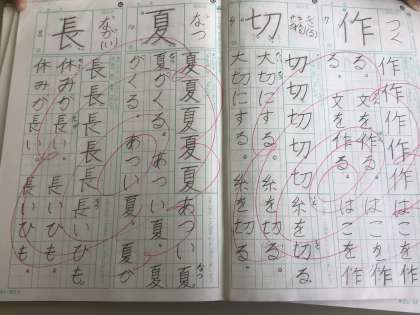 作 つく
作作作作作はこを作
る。文を作る。はこを作
る。文を作る。はこを作
切
切切切切切糸を切る。
大切にする。糸を切る。
大切にする。糸を切る。
夏 なつ
夏夏夏夏夏あつい夏
夏がくる。あつい夏。夏
がくる。あつい夏。夏が
長 なが(い)
長長長長長長いひも。
休みが長い。長いひも。
休みが長い。長いひも。